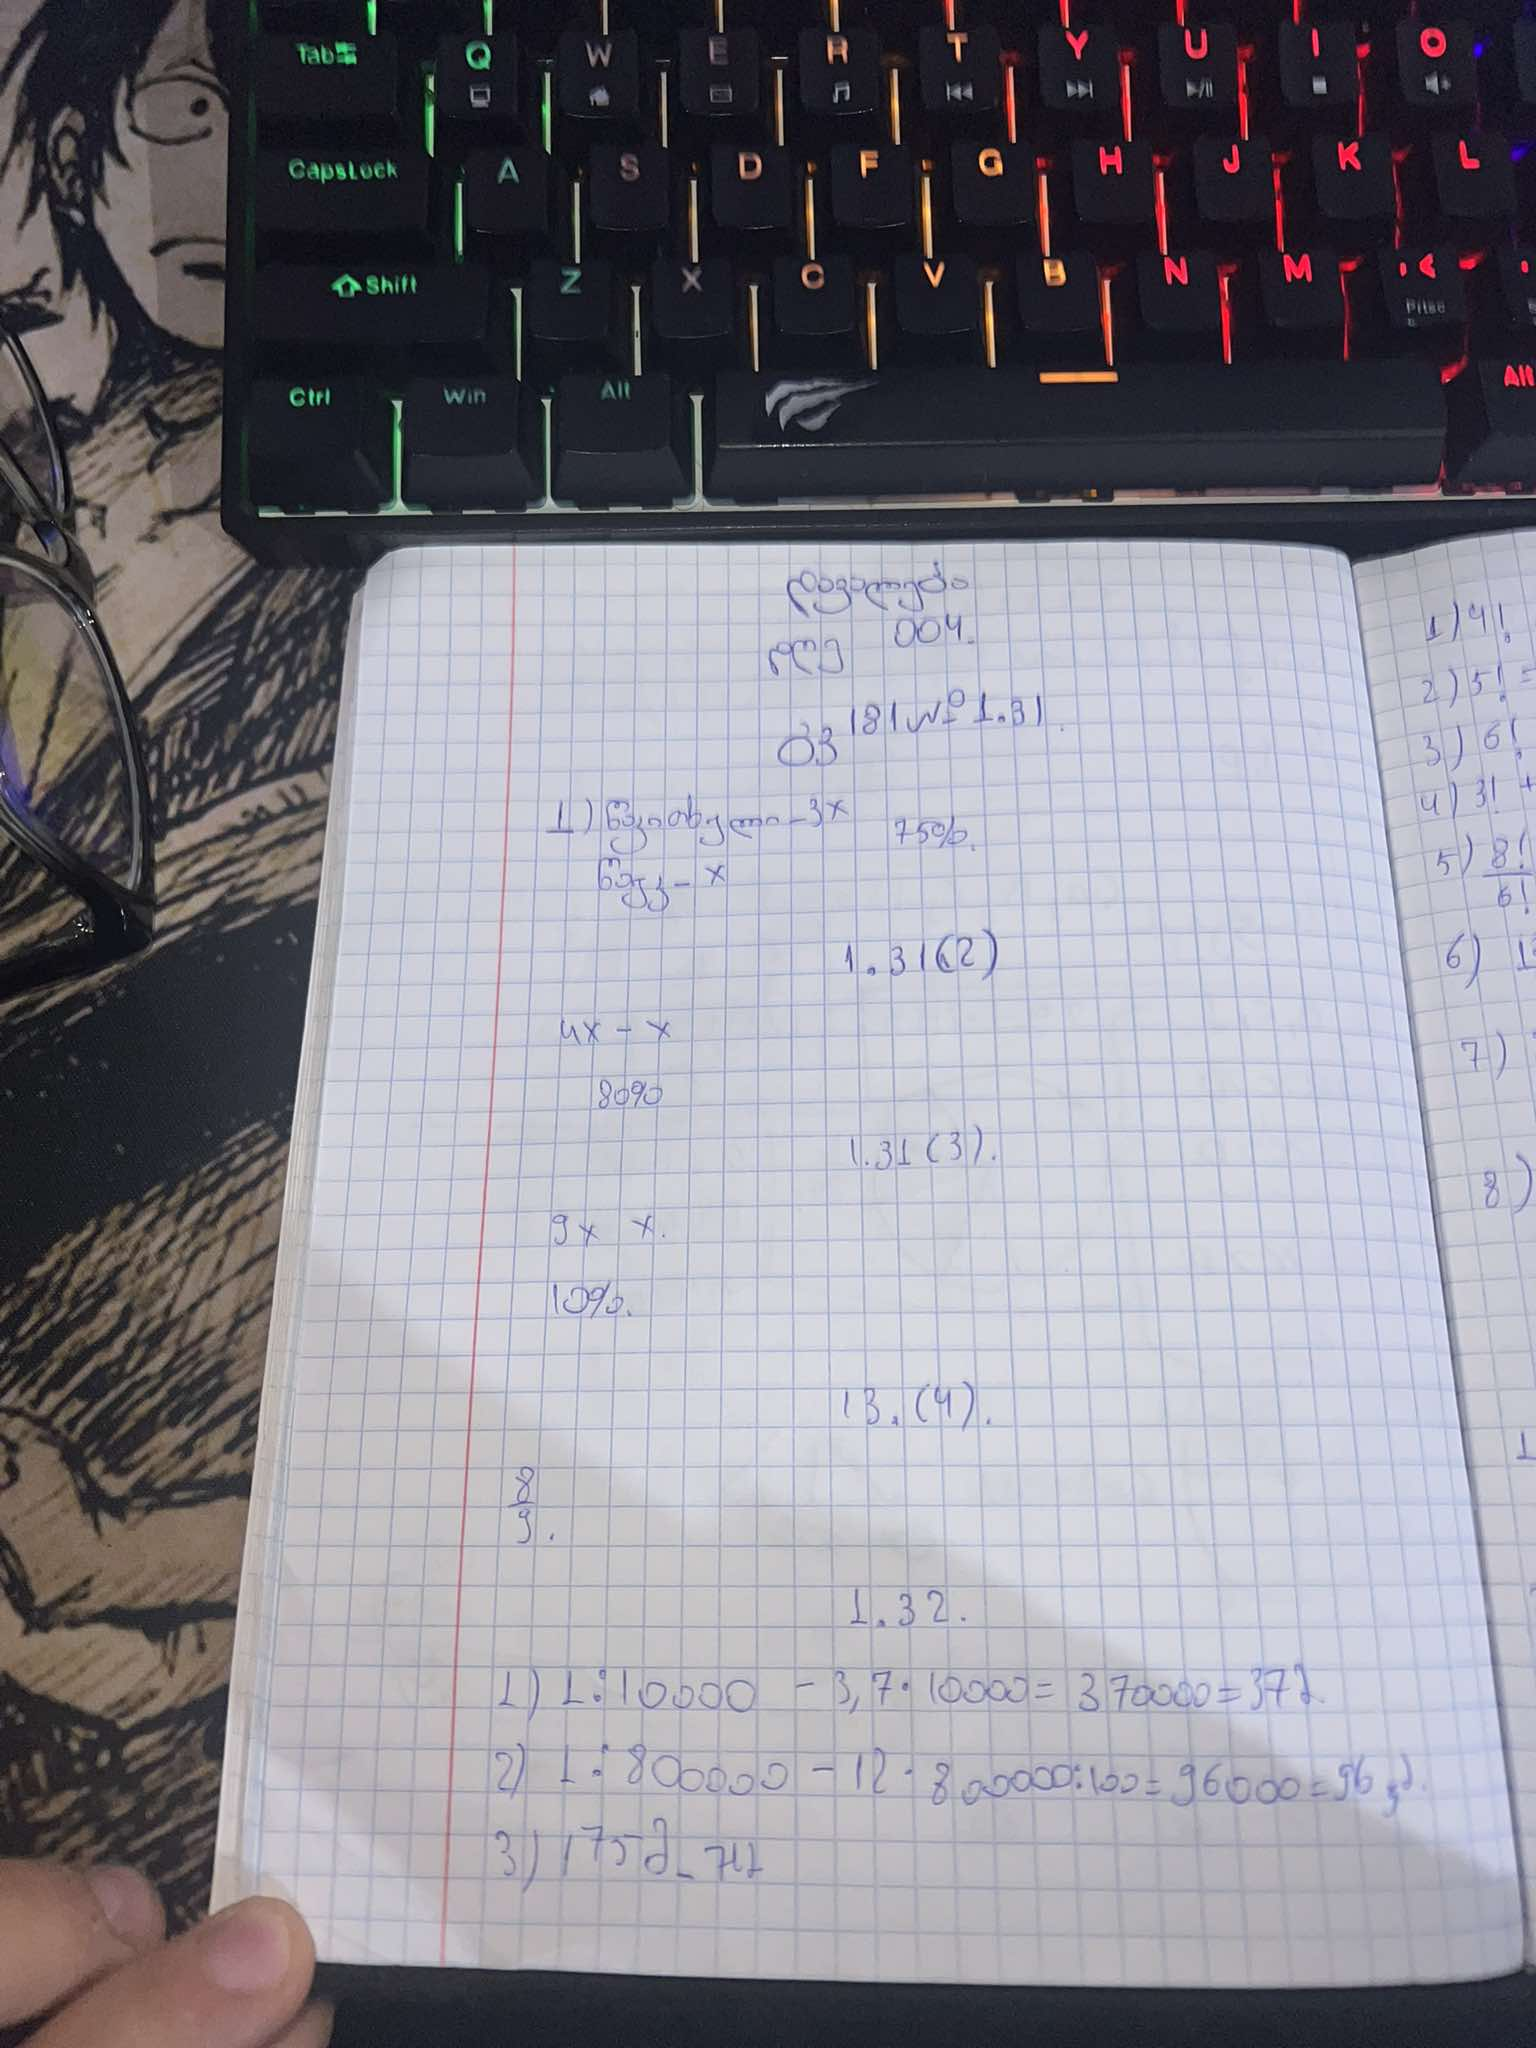 Tab Q W E R T Y U I O
CapsLock A S D F G H J K L
Shift Z X C V B N M <
Ctrl Win Alt Alt
დავალება
004.
გვ 181 № 1.31.
1) წვითხული - 3x 75%.
x
1.31(2)
4x - x
80%
1.31(3).
9x x.
10%.
13.(4).
8
9.
1.32.
1) 1:10000 - 3,7·10000=370000=37
2) 1:800000 - 12·800000:100=96000=96 კმ.
3) 175მ-
1) 4!
2) 5! =
3) 6!
4) 3! +
5) 8!
6!
6) 1
7)
8)
1